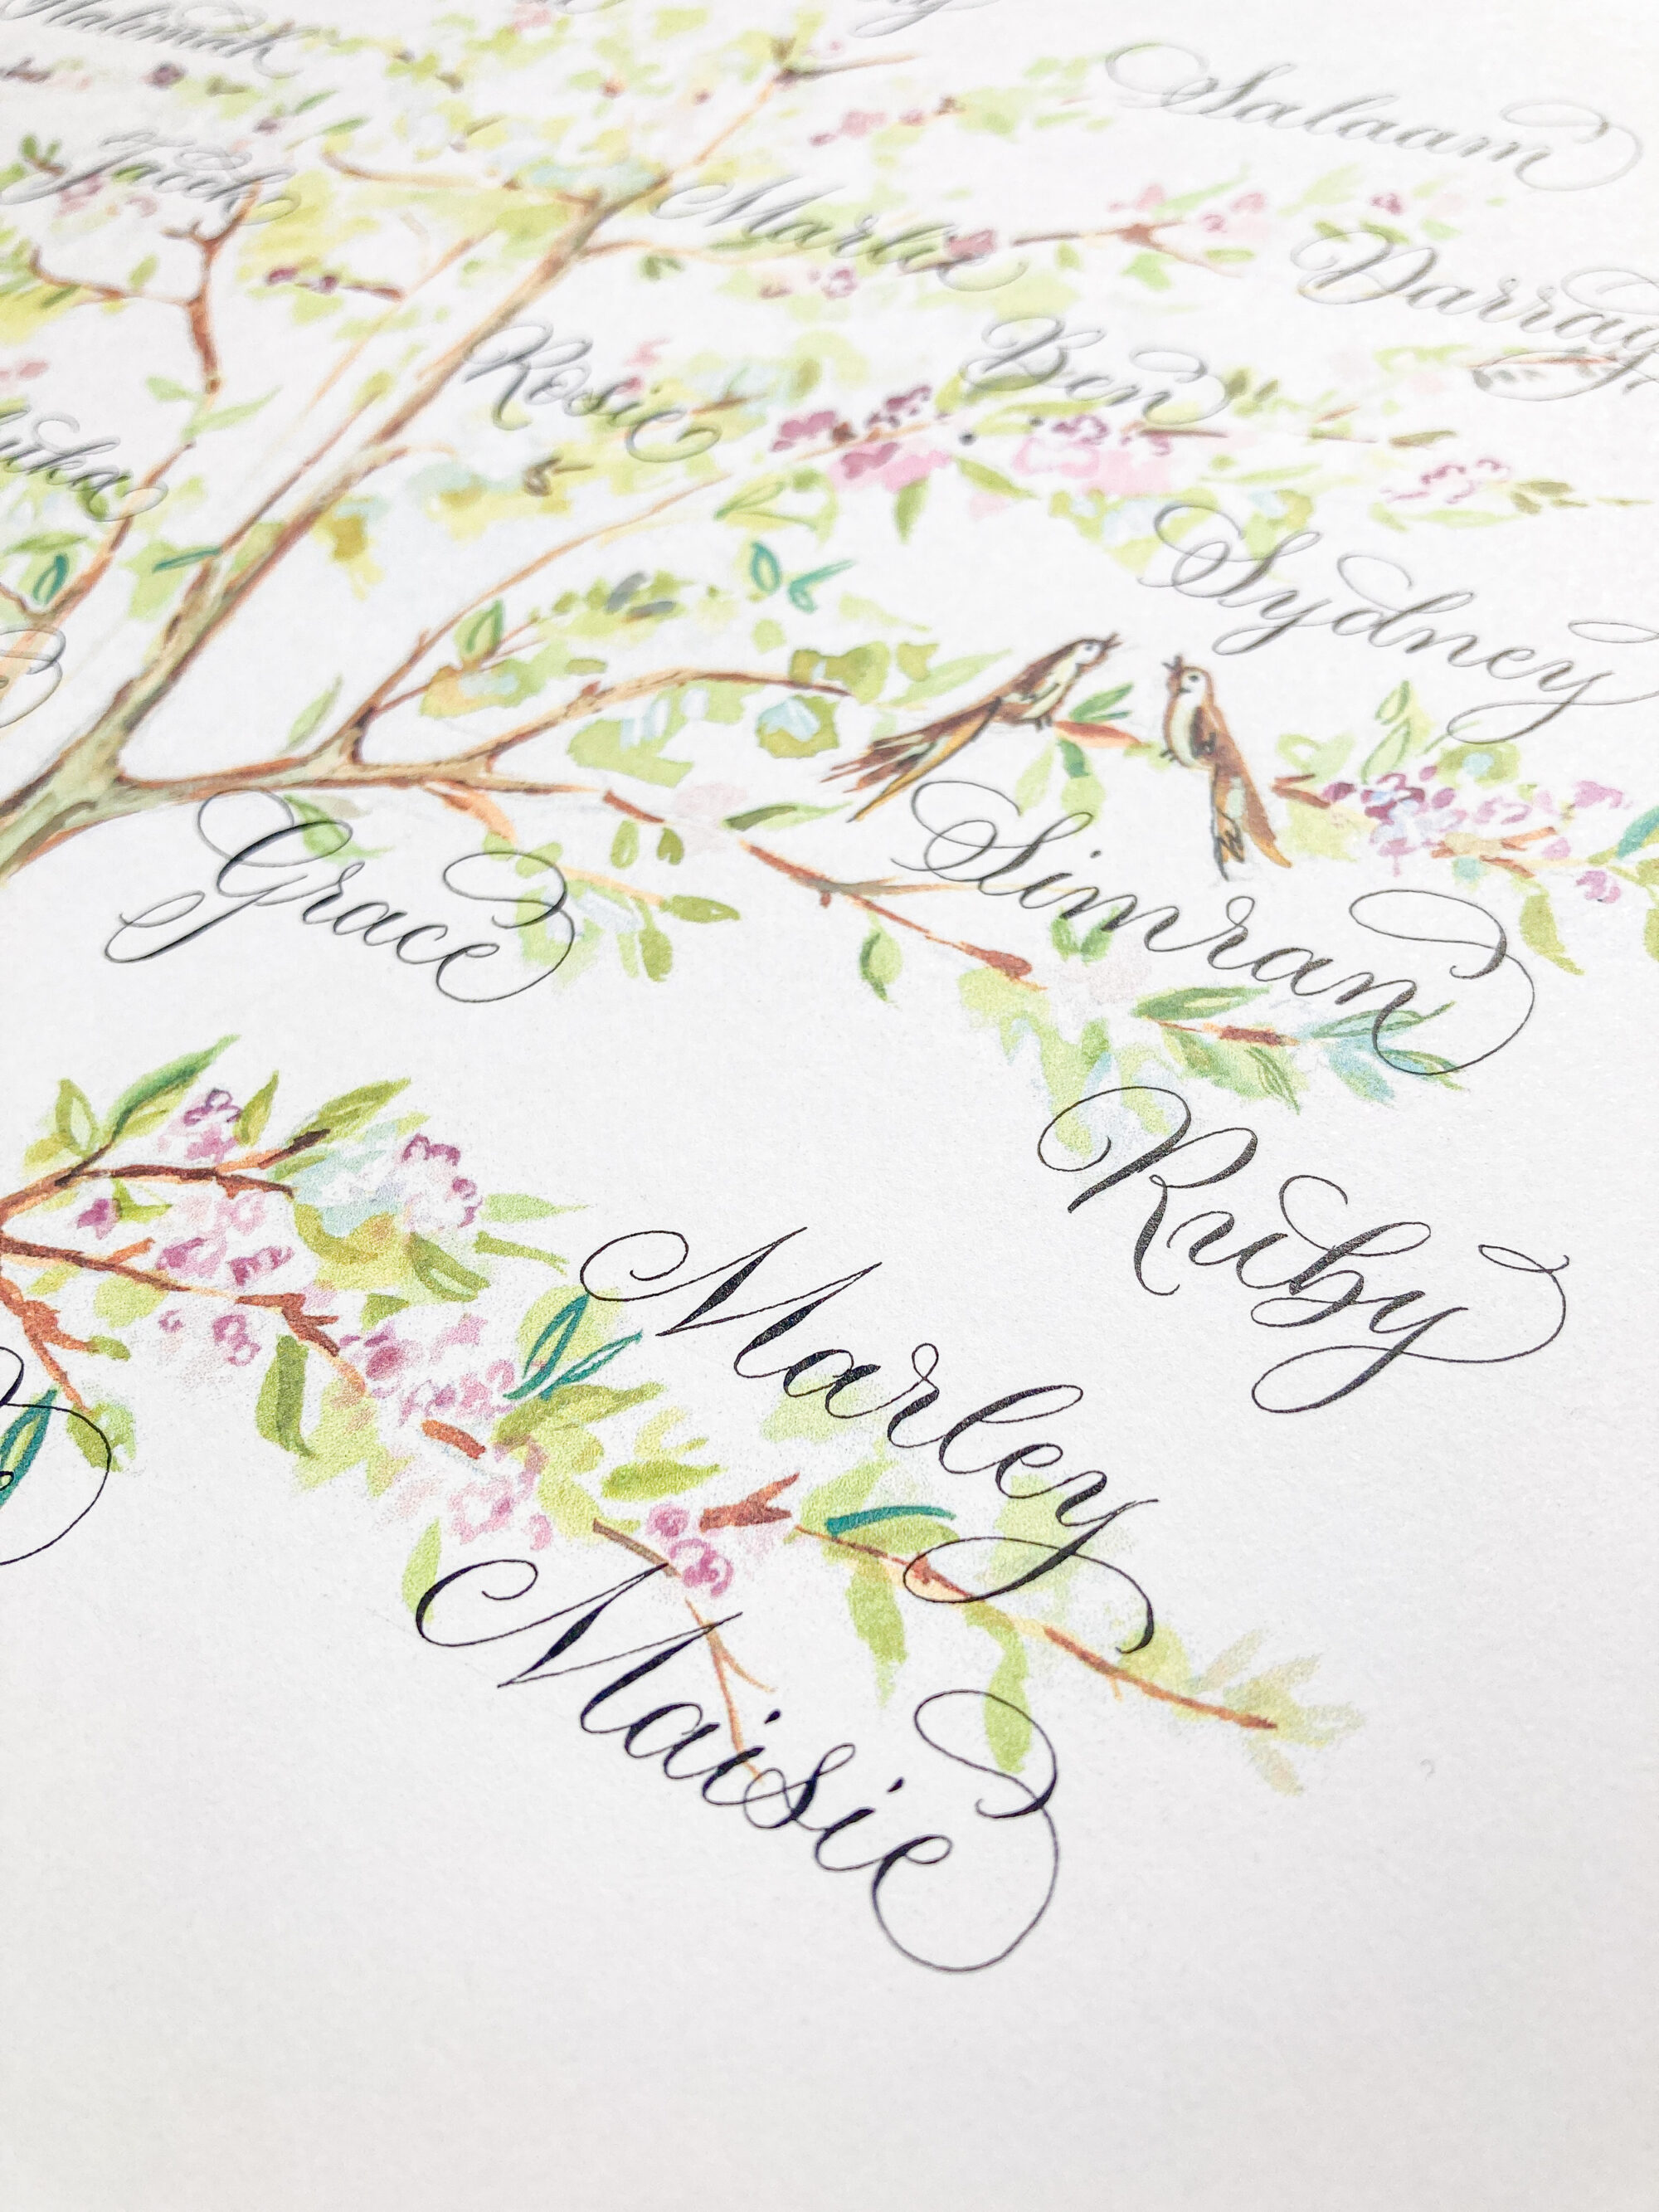 Halimah
Salaam
Jacek
Marlie
Darrag
Rosie
Ben
uka
Sydney
Grace
Simran
Ruby
Marley
Maisie